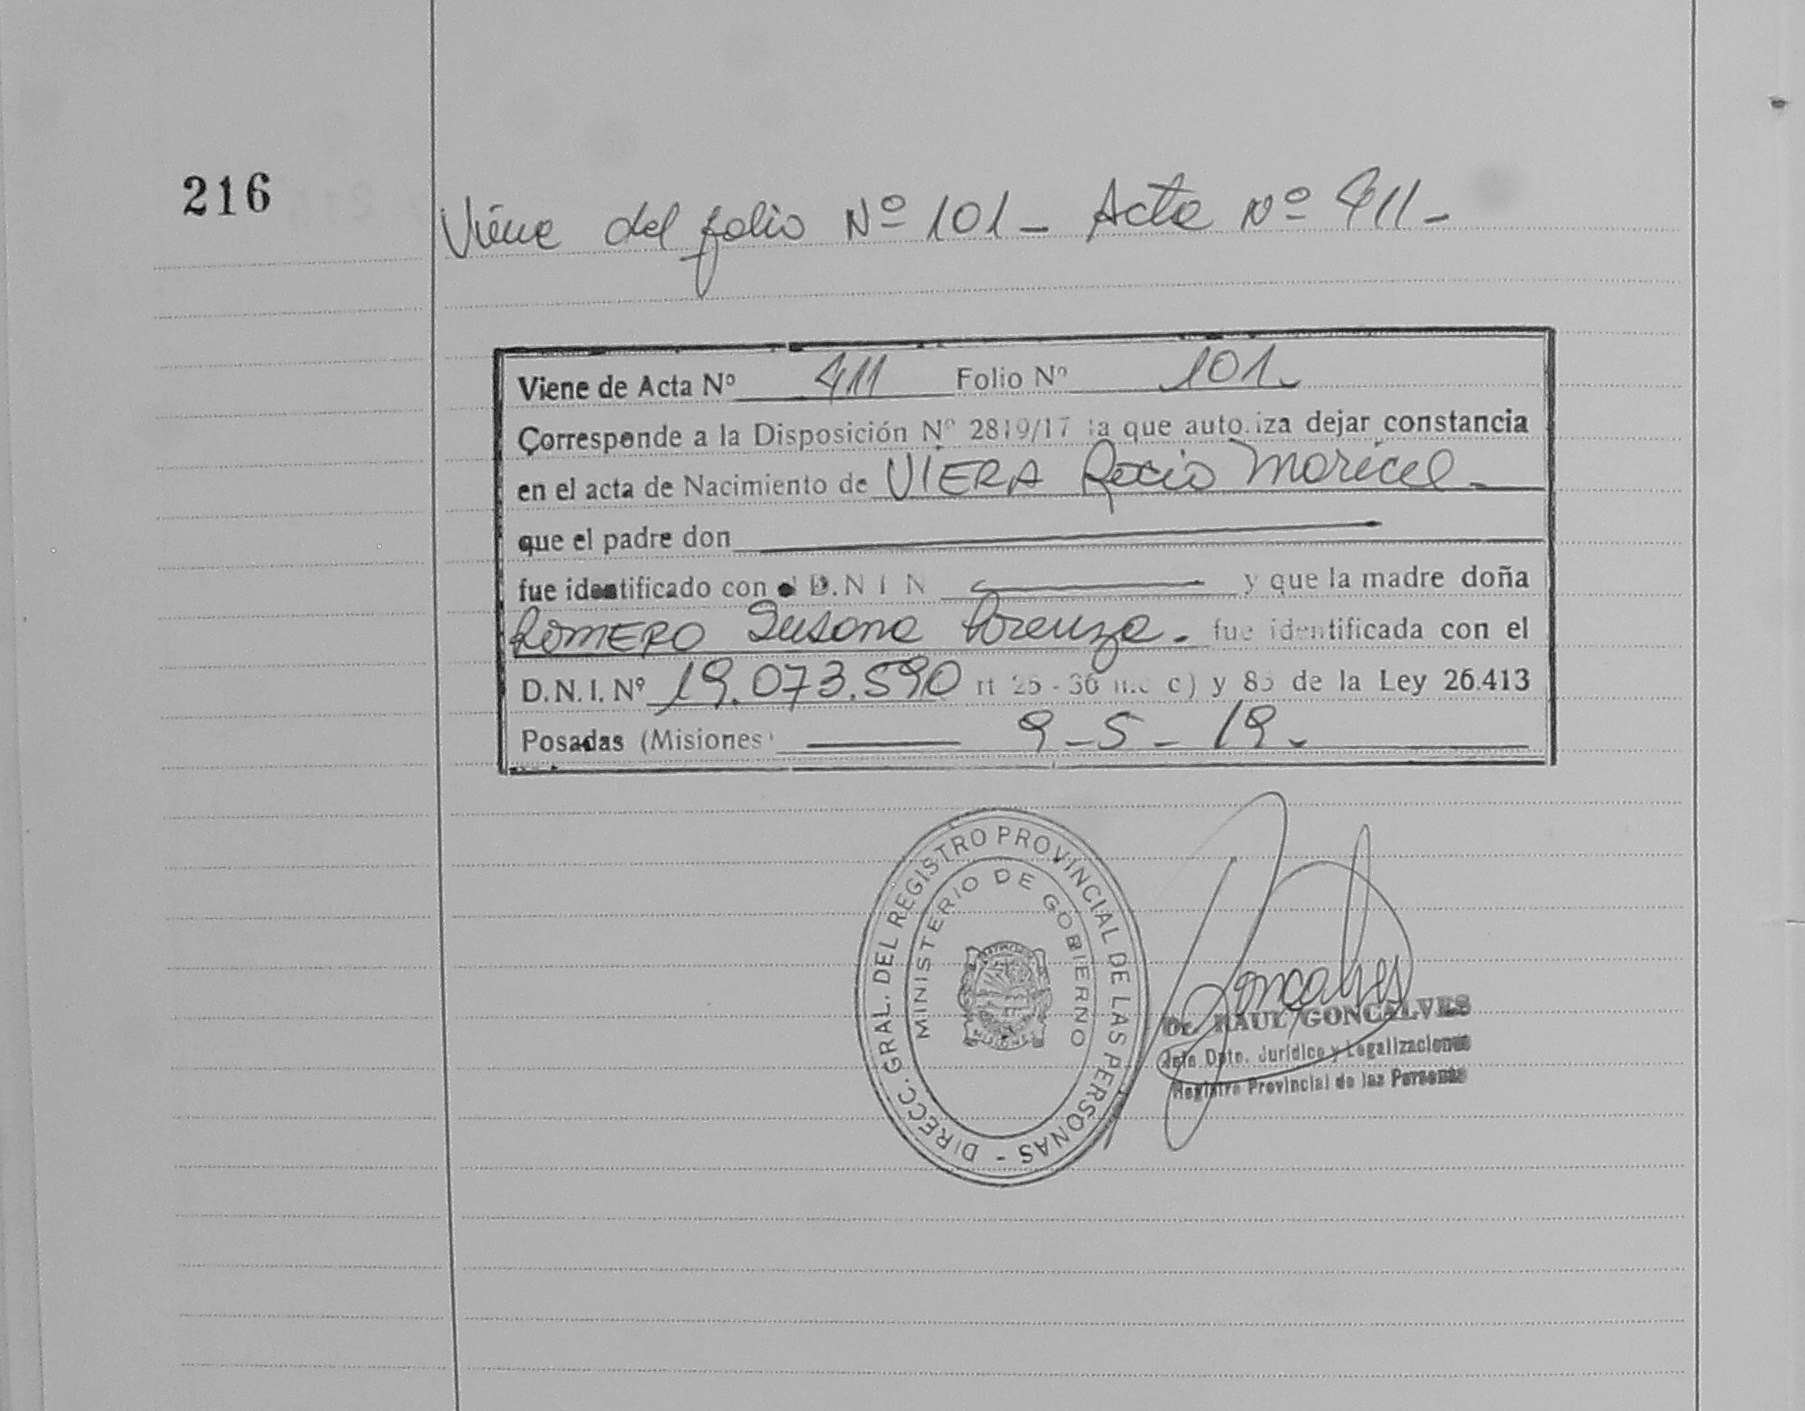 216
Viene del folio Nº 101 - Acta Nº 411 -
Viene de Acta Nº 411 Folio Nº 101.
Corresponde a la Disposición Nº 2819/17 la que autoriza dejar constancia
en el acta de Nacimiento de VIERA Rocio Maricel -
que el padre don
fue identificado con el D.N I N y que la madre doña
ROMERO Susana Lorenza. fue identificada con el
D.N.I. Nº 19.073.590 rt 25 - 36 inc c) y 85 de la Ley 26.413
Posadas (Misiones) 9-5-19.
DIRECC. GRAL. DEL REGISTRO PROVINCIAL DE LAS PERSONAS -
MINISTERIO DE GOBIERNO
MISIONES
Gonçalves
Dr. RAUL GONCALVES
Jefe Dpto. Jurídico y Legalizaciones
Registro Provincial de las Personas